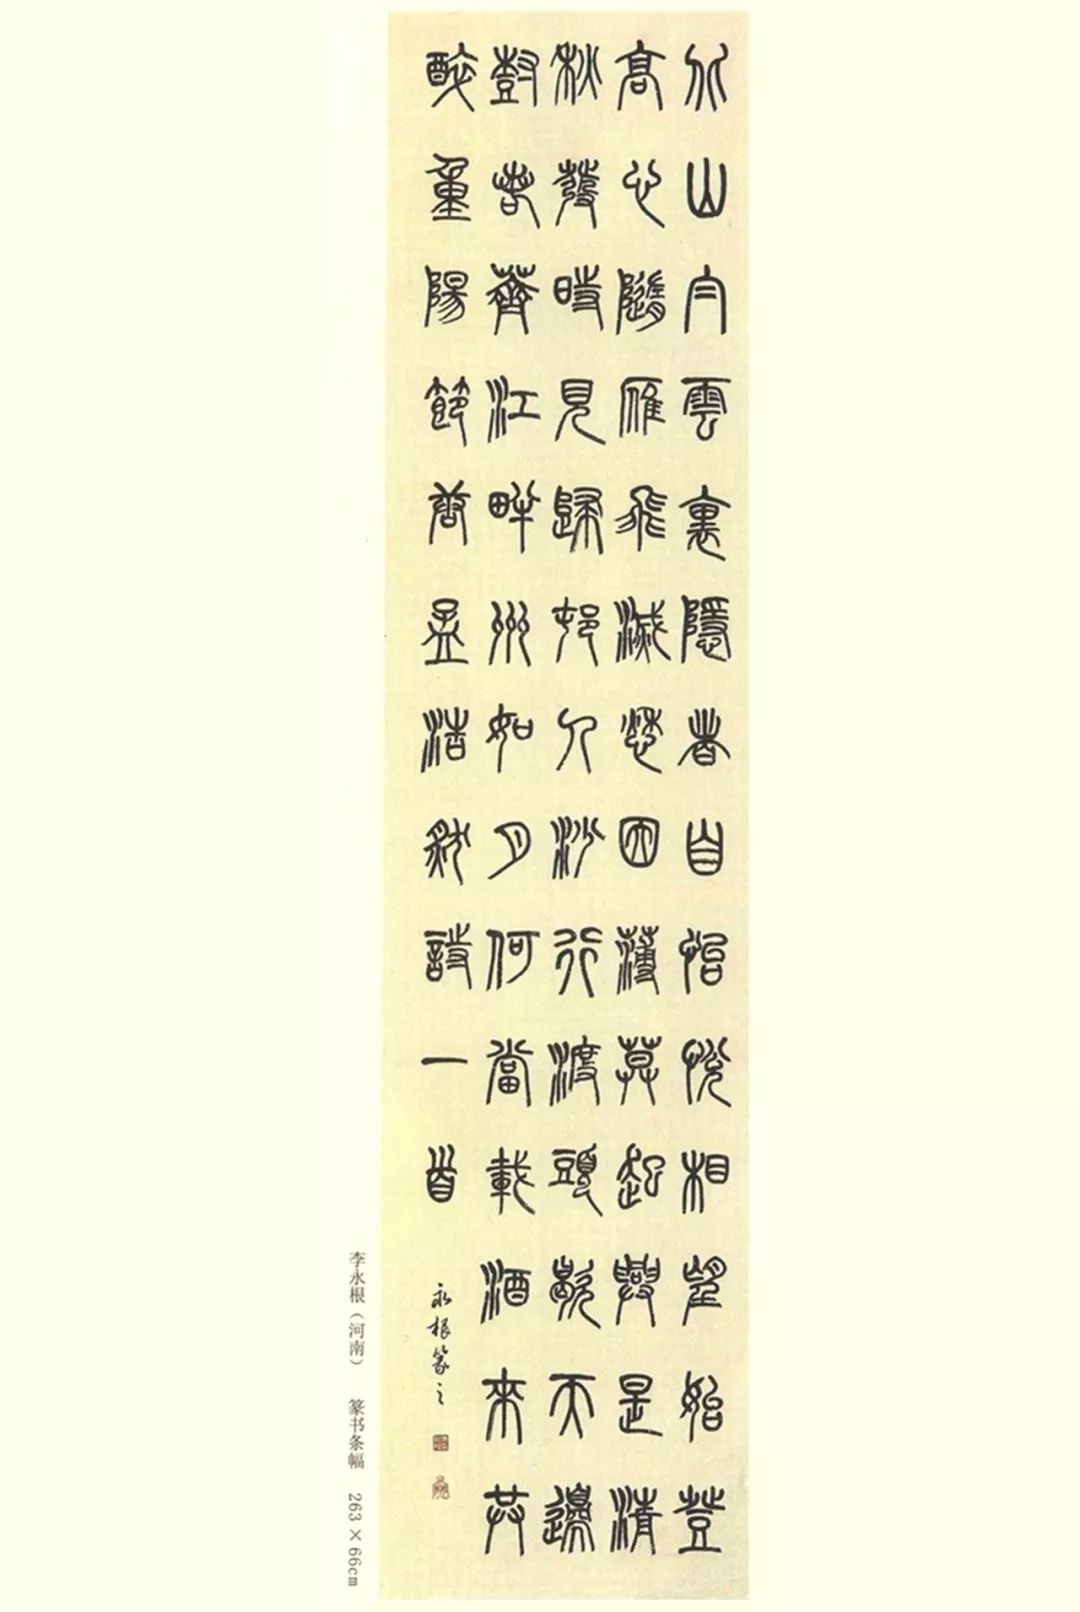 北山白雲裏隱者自怡悅相望始登
高心隨雁飛滅愁因薄莫起興是清
秋發時見歸邨人沙行渡頭歇天邊
尌若薺江畔州如月何當載酒來共
醉重陽節唐孟浩然詩一首
永根篆之
李永根（河南） 篆书条幅 263×66cm